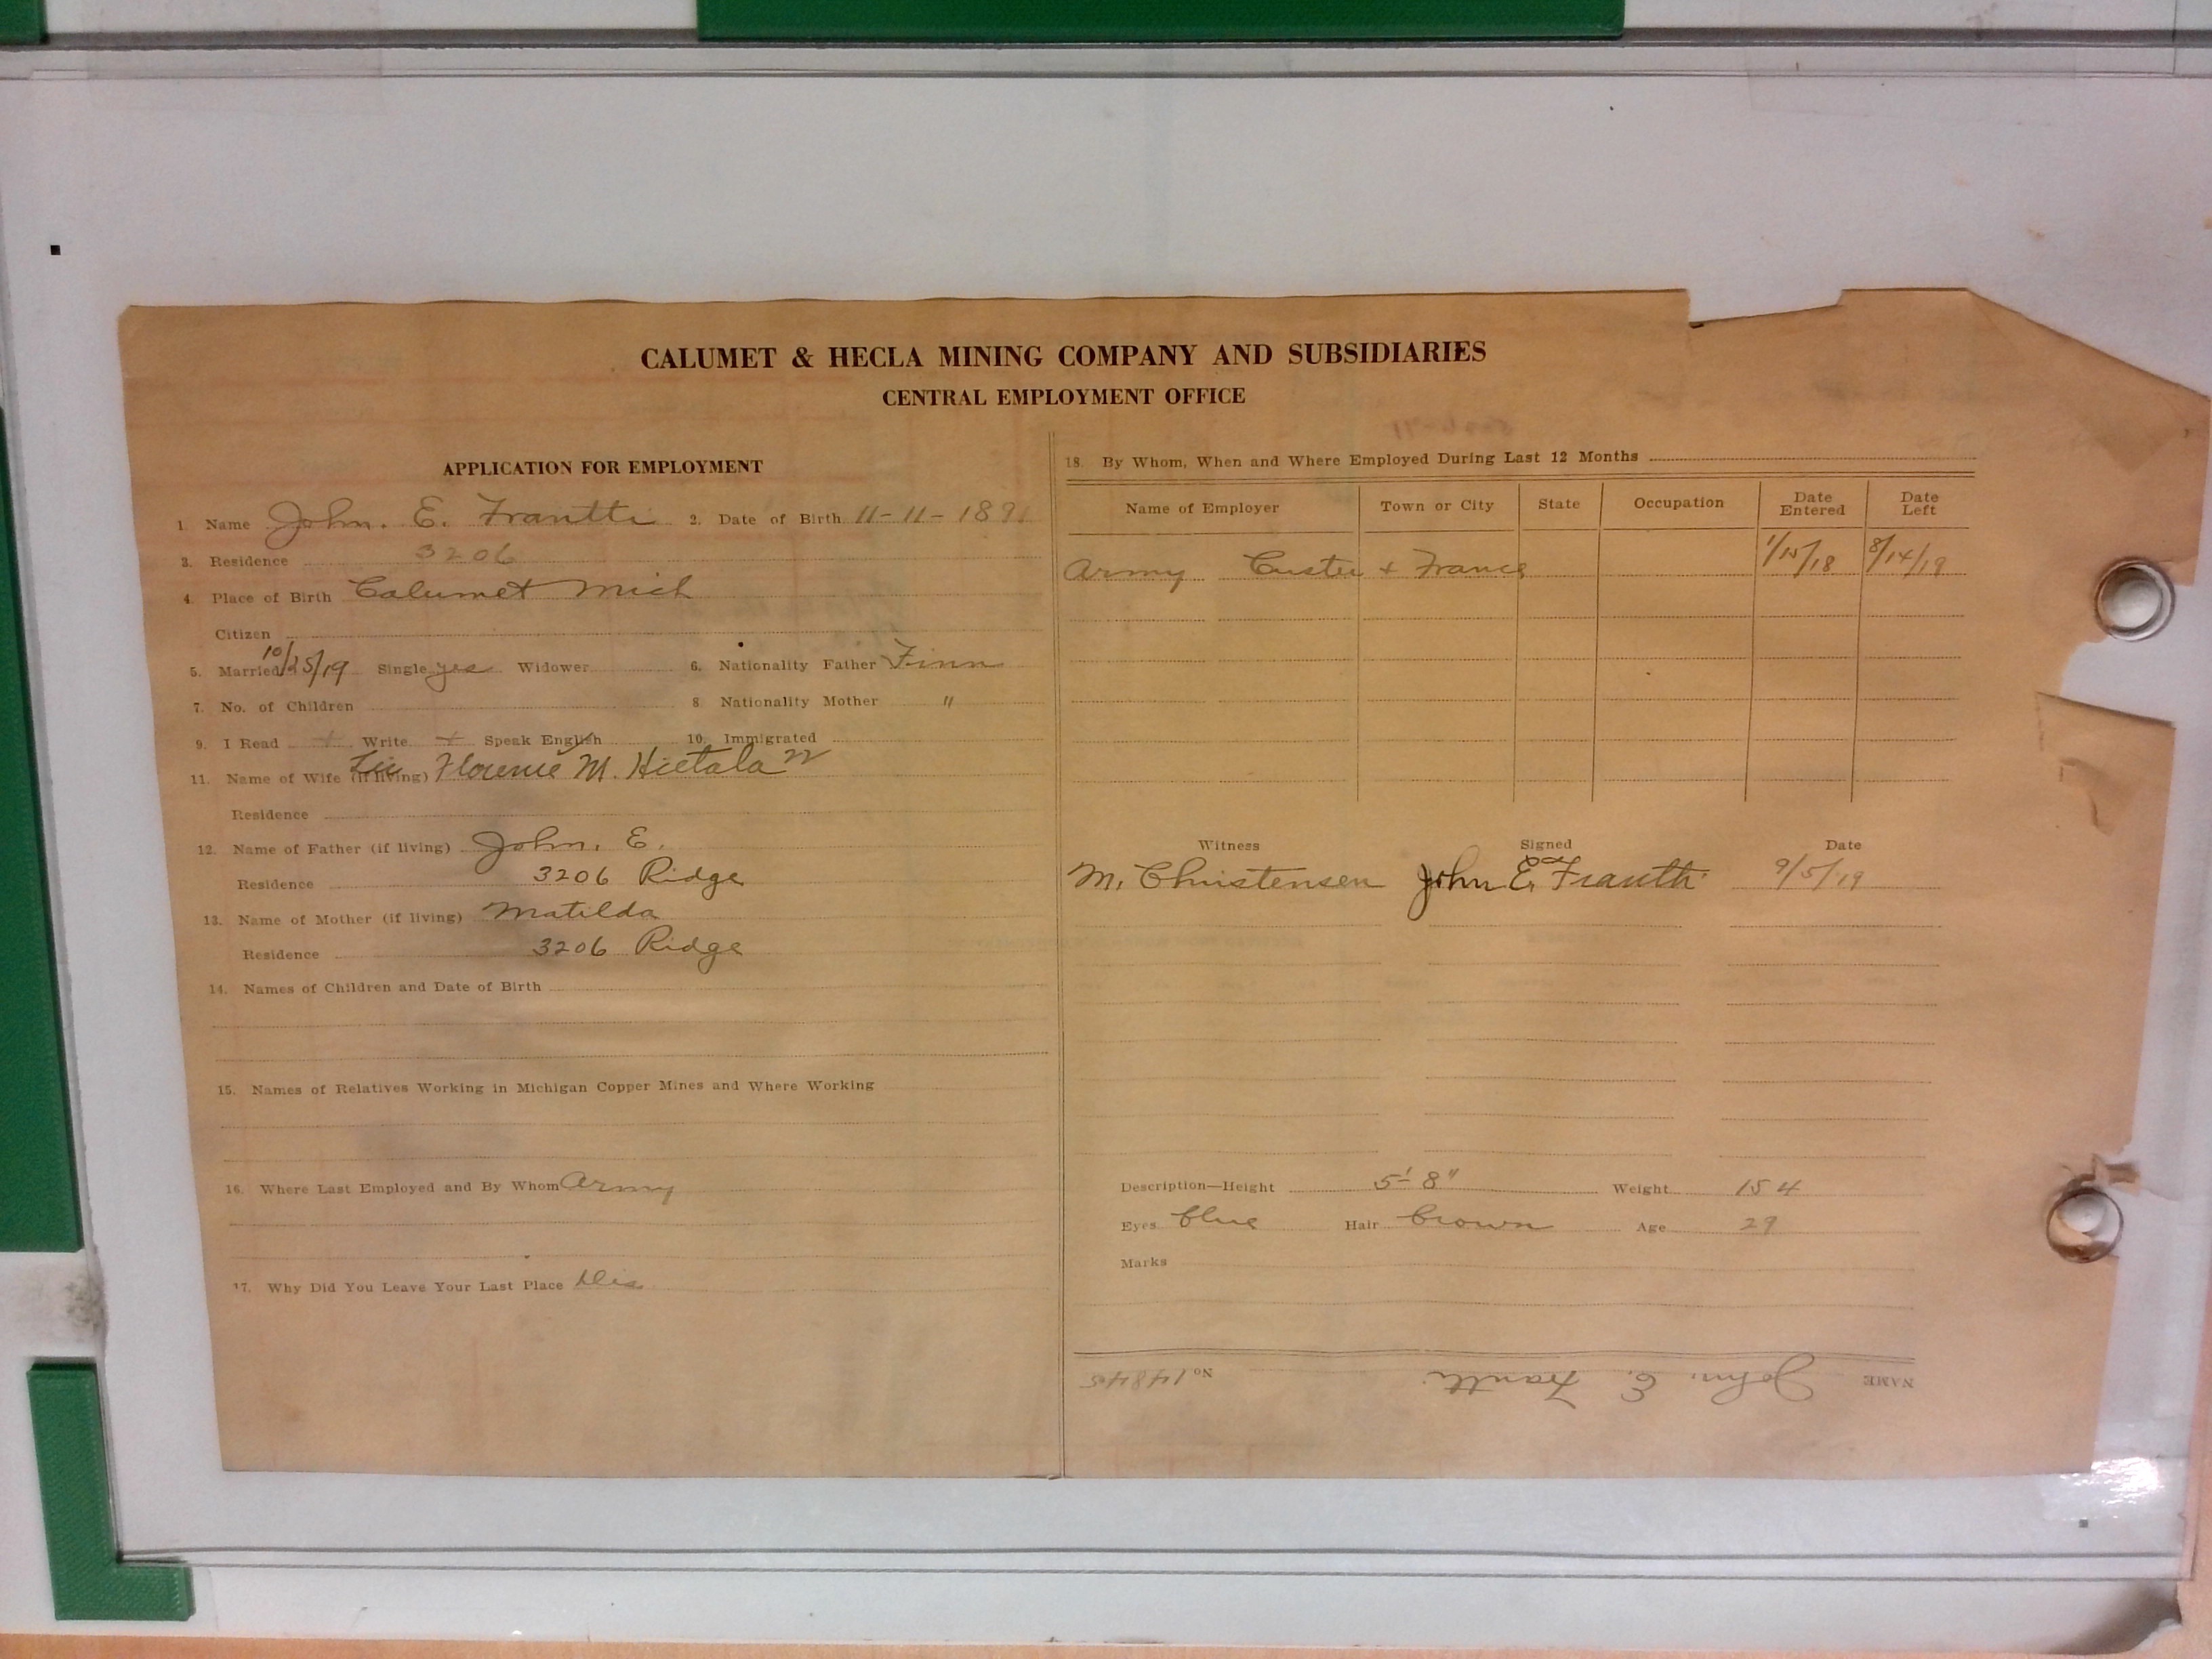 CALUMET & HECLA MINING COMPANY AND SUBSIDIARIES
CENTRAL EMPLOYMENT OFFICE
APPLICATION FOR EMPLOYMENT
1. Name John. E. Frantti 2. Date of Birth 11-11-189
3. Residence 3206
4. Place of Birth Calumet Mich
Citizen
5. Married 10/25/19 Single yes Widower 6. Nationality Father Finn
7. No. of Children 8 Nationality Mother "
9. I Read + Write + Speak English 10. Immigrated
11. Name of Wife (if living) Lic Florence M. Hietala 22
Residence
12. Name of Father (if living) John. E.
Residence 3206 Ridge
13. Name of Mother (if living) Matilda
Residence 3206 Ridge
14. Names of Children and Date of Birth
15. Names of Relatives Working in Michigan Copper Mines and Where Working
16. Where Last Employed and By Whom Army
17. Why Did You Leave Your Last Place Dis
18. By Whom, When and Where Employed During Last 12 Months
Name of Employer Town or City State Occupation Date Entered Date Left
Army Custer + France 1/15/18 8/14/19
Witness Signed Date
M. Christensen John E. Frantti 9/5/19
Description—Height 5'-8" Weight 154
Eyes blue Hair brown Age 29
Marks
NAME John. E. Frantti No 14845